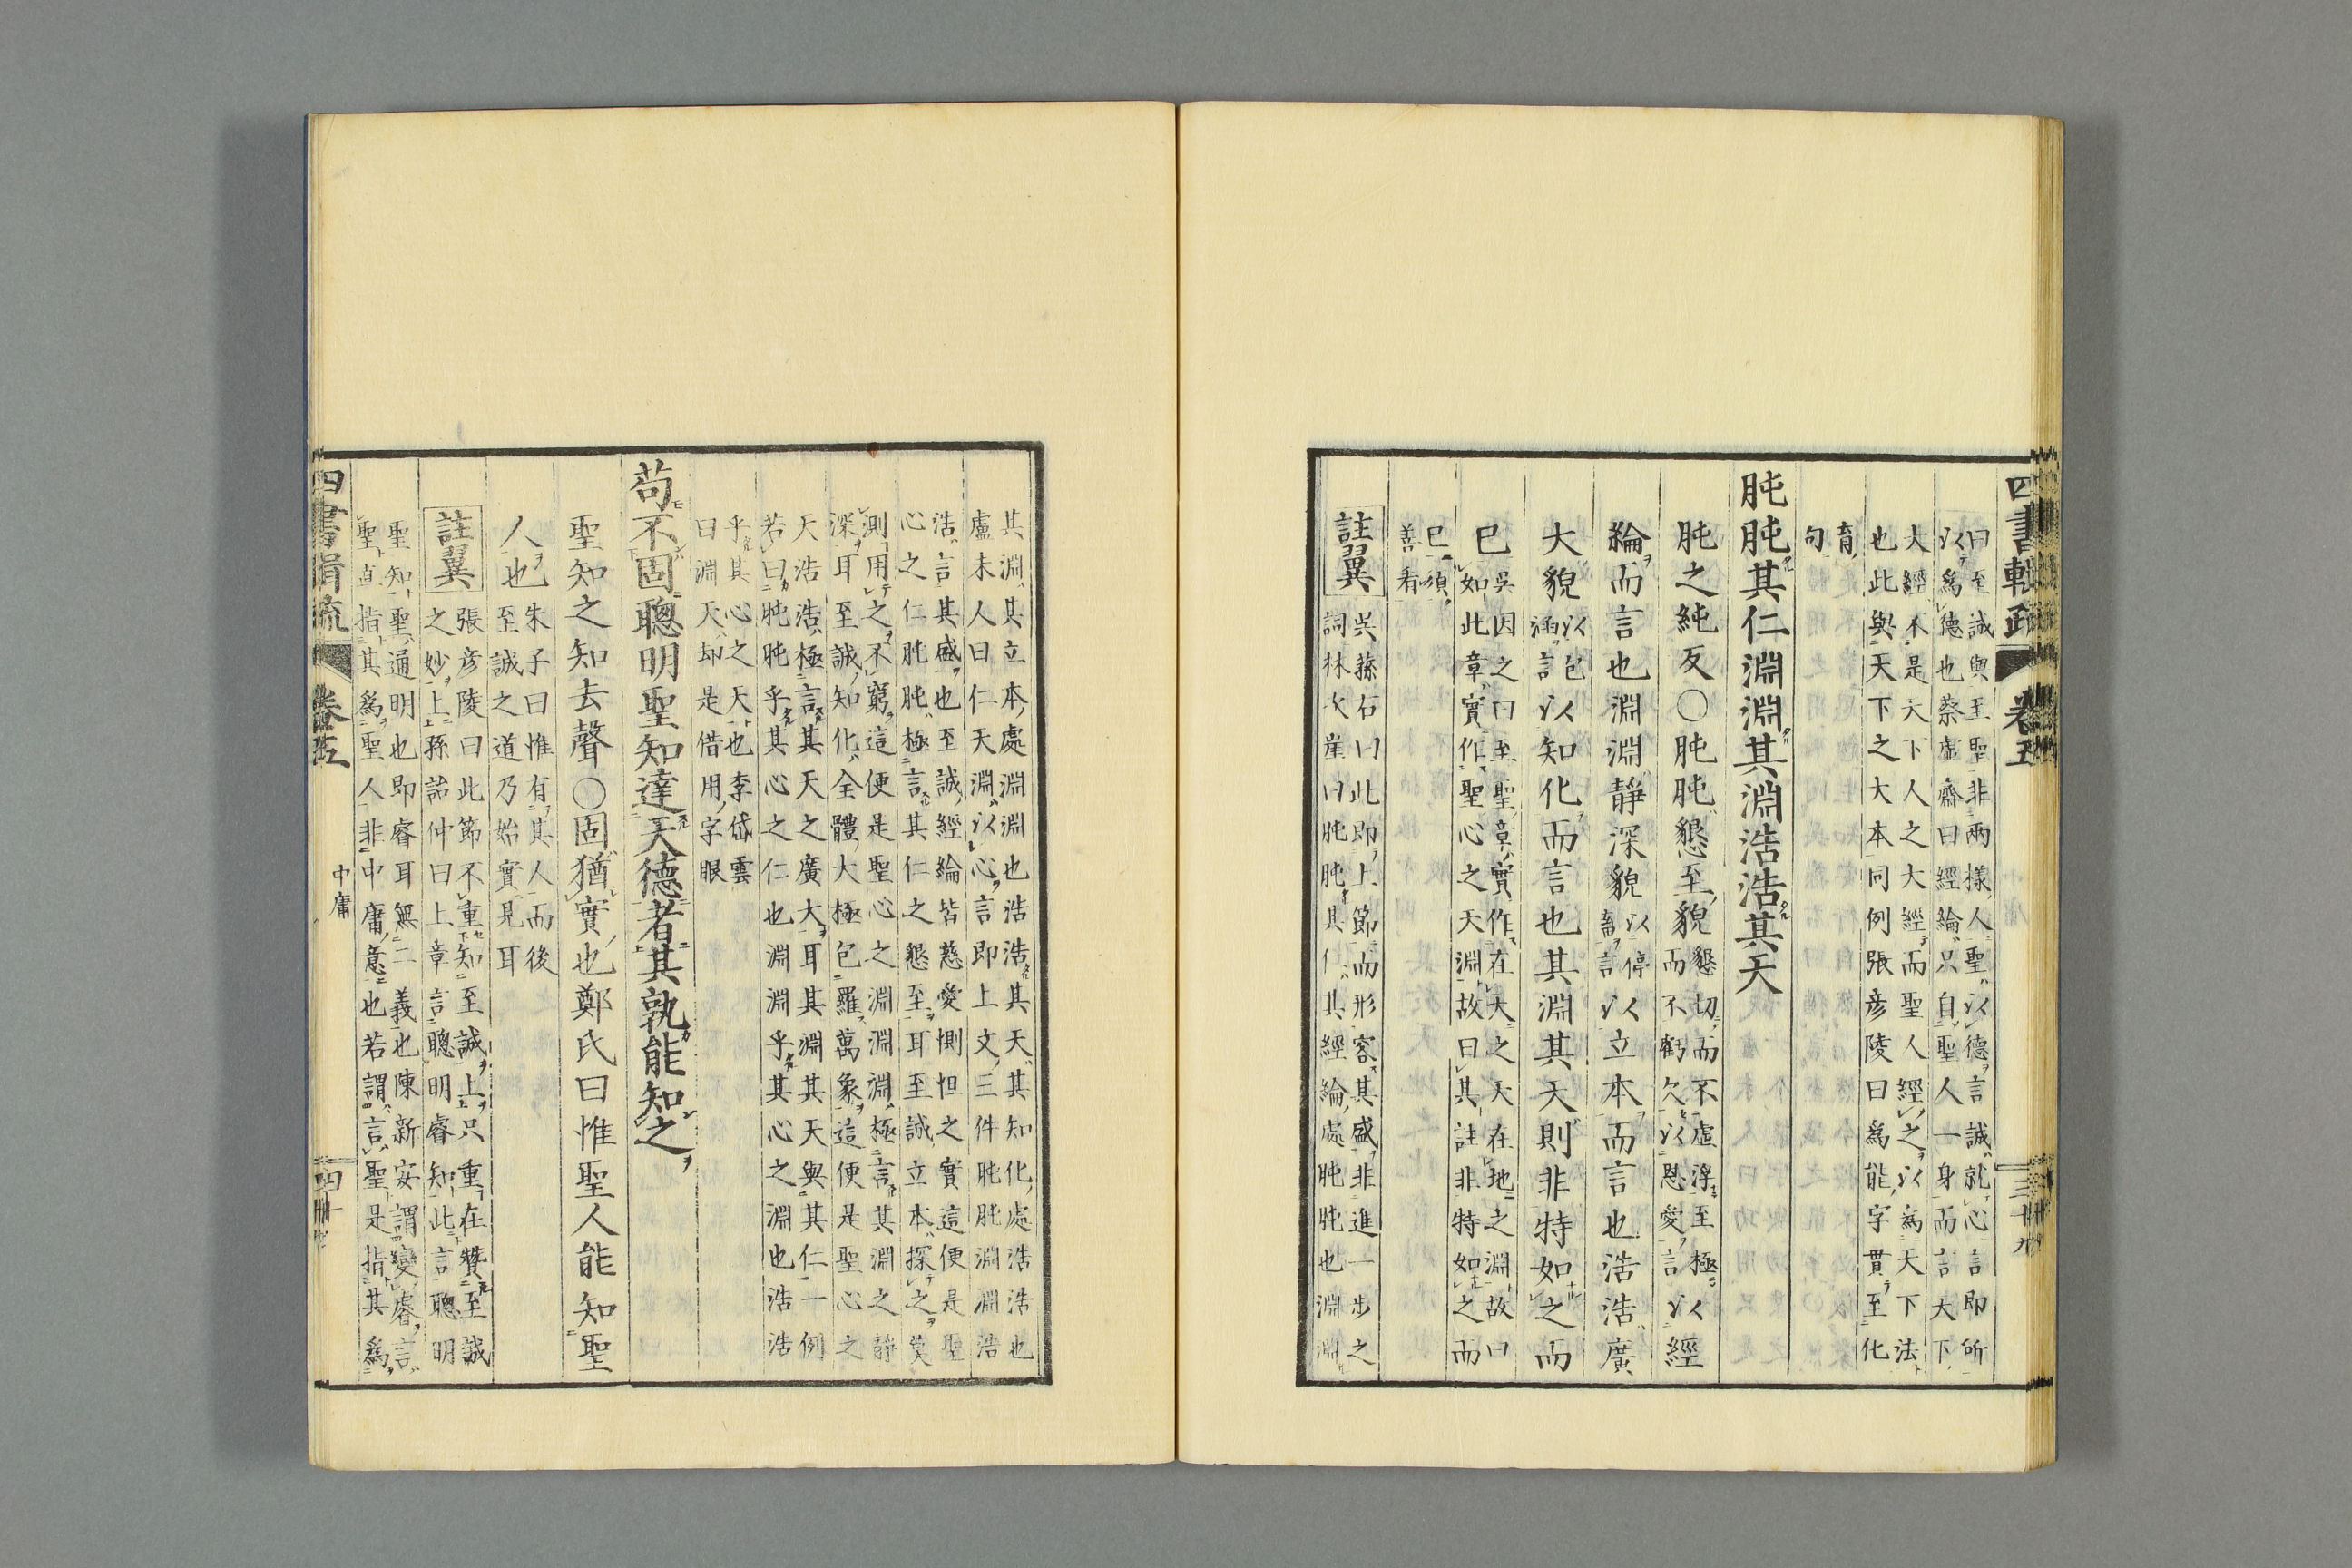 四書輯疏 卷五 三十九
曰至誠與至聖非兩樣人聖以德言誠就心言即所
以爲德也蔡虛齋曰經綸只自聖人一身而言天下
大經不是天下人之大經而聖人經之以爲天下法
也此與天下之大本同例張彥陵曰爲能字貫至化
育
句
肫肫其仁淵淵其淵浩浩其天
肫之純反○肫肫懇至貌懇切而不虛浮至極
而不虧欠以恩愛言以經
綸而言也淵淵靜深貌以停
畜言以立本而言也浩浩廣
大貌以包
涵言以知化而言也其淵其天則非特如之而
已吳因之曰至聖章實作在天之天在地之淵故曰
如此章實作聖心之天淵故曰其註非特如之而
已須
善看
註翼 吳蓀右曰此即上節而形容其盛非進一步之
詞林次崖曰肫肫其仁其經綸處肫肫也淵淵
其淵其立本處淵淵也浩浩其天其知化處浩浩也
盧未人曰仁天淵以心言即上文三件肫肫淵淵浩
浩言其盛也至誠經綸皆慈愛惻怛之實這便是聖
心之仁肫肫極言其仁之懇至耳至誠立本探之莫
測用之不窮這便是聖心之淵淵淵極言其淵之靜
深耳至誠知化全體大極包羅萬象這便是聖心之
天浩浩極言其天之廣大耳其淵其天與其仁一例
若曰肫肫乎其心之仁也淵淵乎其心之淵也浩浩
乎其心之天也李岱雲
曰淵天却是借用字眼
苟不固聰明聖知達天德者其孰能知之
聖知之知去聲○固猶實也鄭氏曰惟聖人能知聖
人也朱子曰惟有其人而後
至誠之道乃始實見耳
註翼 張彥陵曰此節不重知至誠上只重在贊至誠
之妙上孫詒仲曰上章言聰明睿知此言聰明
聖知聖通明也即睿耳無二義也陳新安謂變睿言
聖直指其爲聖人非中庸意也若謂言聖是指其爲
四書輯疏 卷五 中庸 四十